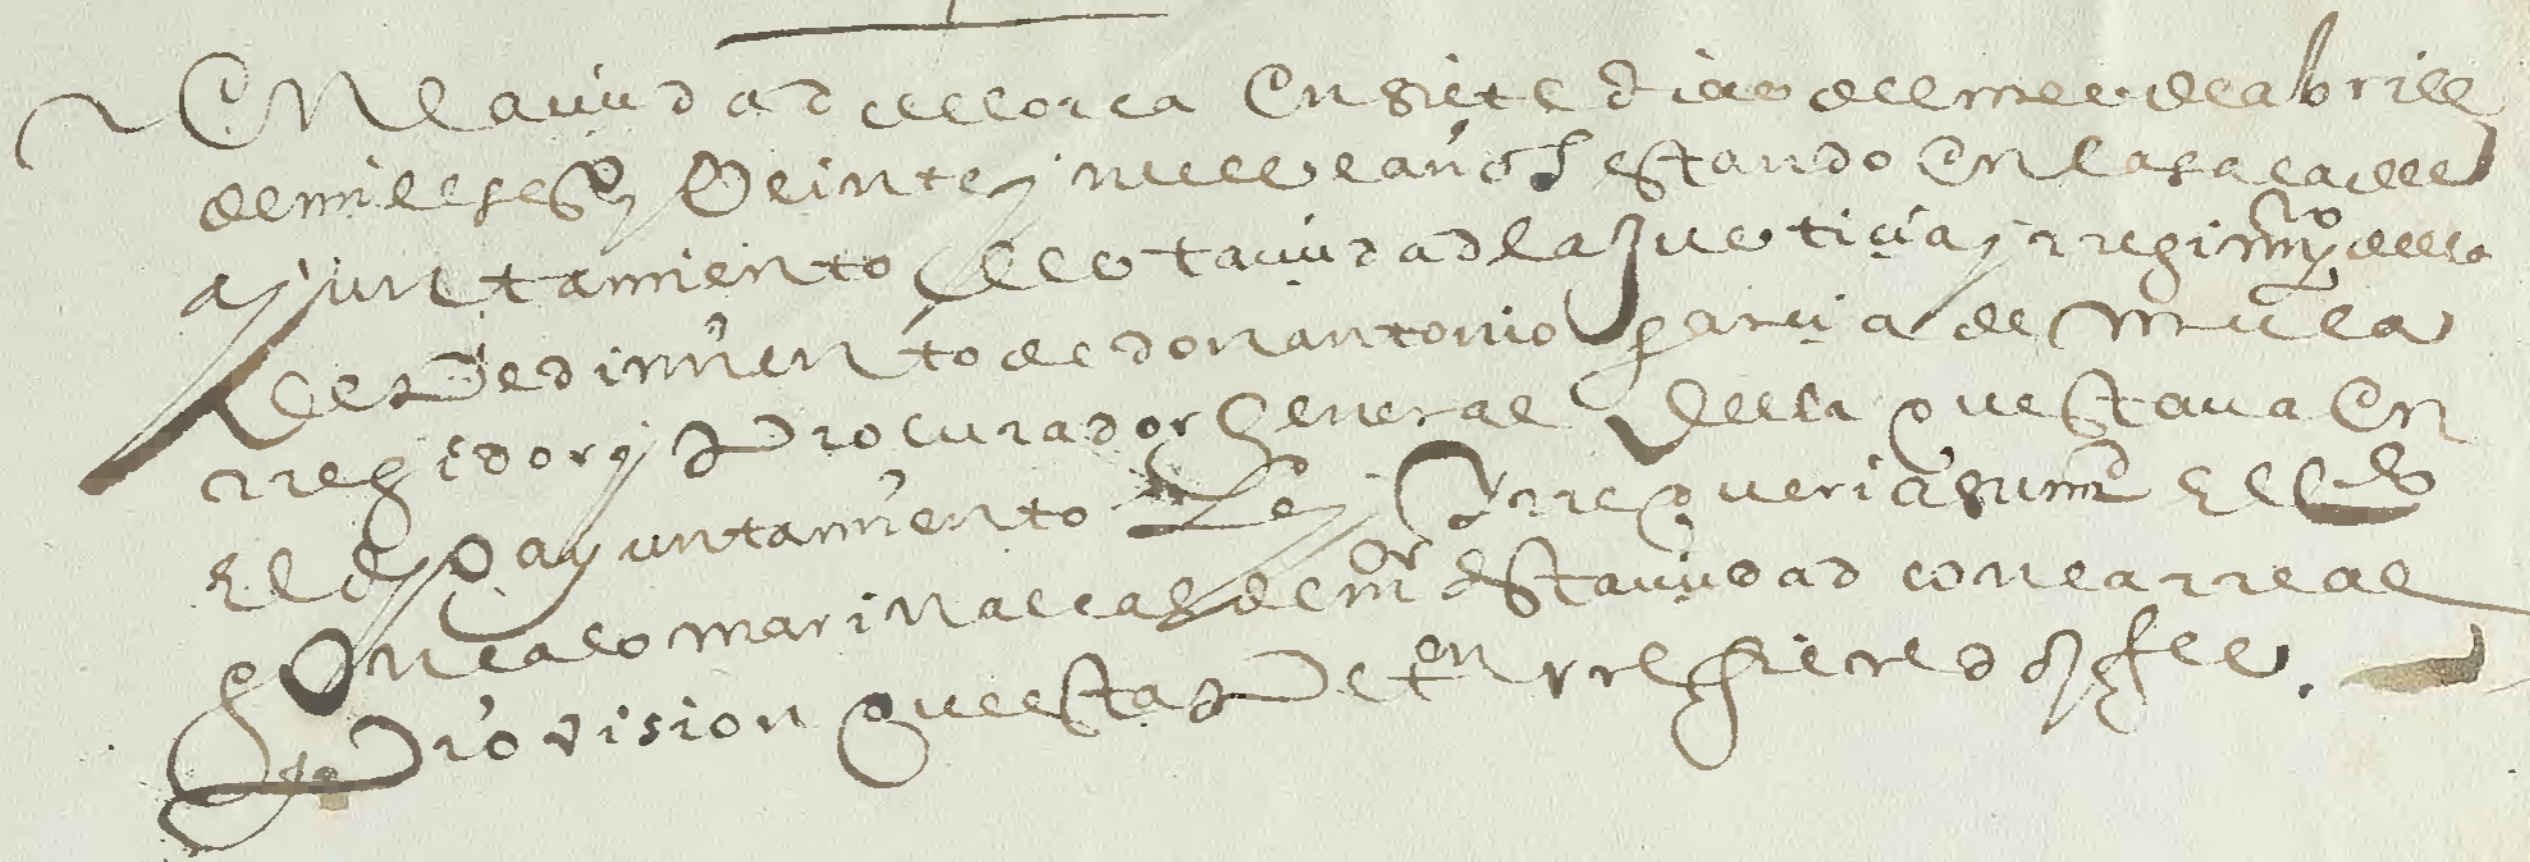 En la ciudad de lorca En siete dias del mes de abrill
de mill e seisº y Veinte y nueve años estando En la sala del
ayuntamiento desta ciudad la Justicia y rregimyº della
de pedimiento de don antonio garcia de mula
rregidor y Procurador General della questava En
El dhº ayuntamiento ley y rrequeri a su md El Ldo
gonçalo marin alcalde mor desta ciudad con la rreal
Provision questa Peton rrefiere doy fee.